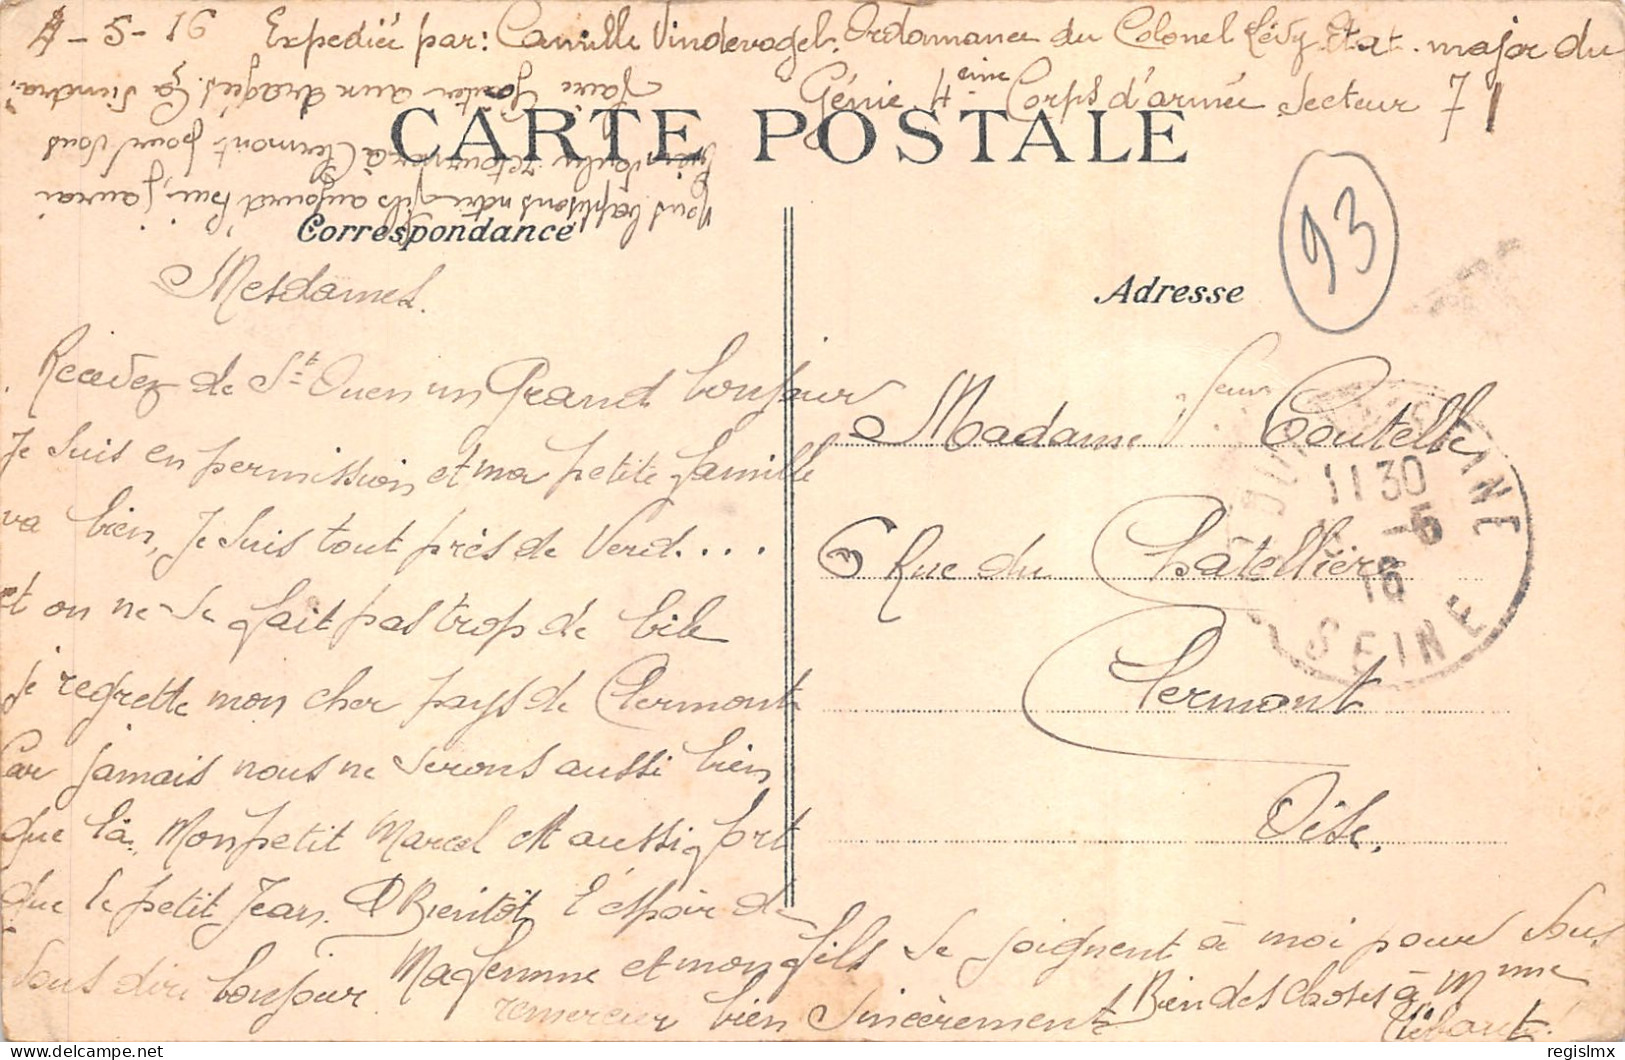 4-5-16 Expediée par: Camille Vindevogel. Ordonnance du Colonel Lévy. Etat. major du
Génie 4eme Corps d'armée Secteur 71
CARTE POSTALE
Correspondance
Adresse
93
Nous baptisons notre fils aujourd'hui, j'aurai
bien voulu retourner à Clermont pour vous
faire goûter aux dragées. Ça viendra.
Mesdames.
Recevez de St Ouen un Grand bonjour
Je suis en permission et ma petite famille
va bien, Je suis tout près de Verd....
et on ne se fait pas trop de bile
je regrette mon cher pays de Clermont
Car jamais nous ne serons aussi bien
que là. Mon petit Marcel est aussi fort
que le petit Jean. A Bientôt l'espoir de
vous dire bonjour. Ma femme et mon fils se joignent à moi pour vous
remercier bien Sincèrement Bien des choses à Mme
Madame Coutelle
6 Rue du Châtellier
Clermont
Oise.
11 30
-5
16
SEINE
regislmx